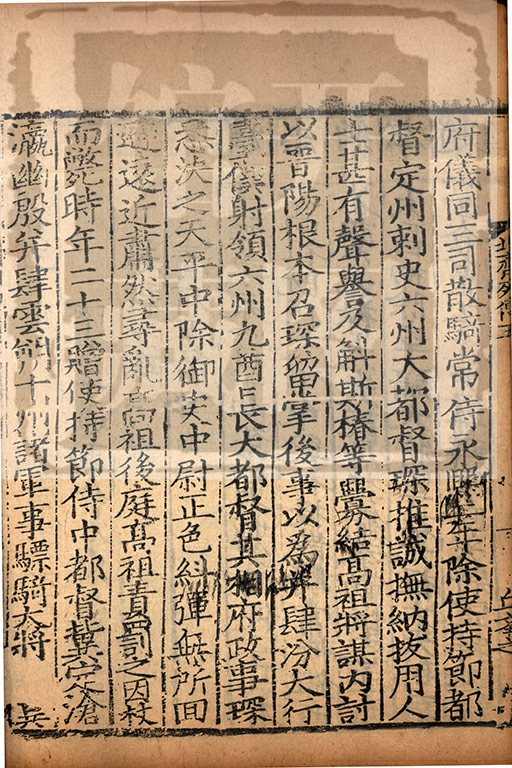 府儀同三司散騎常侍永熙二年除使持節都
督定州刺史六州大都督琛推誠撫納拔用人
士甚有聲譽及斛斯椿等釁結高祖將謀內討
以晉陽根本召琛留掌後事以為并肆汾大行
臺僕射領六州九酋長大都督其相府政事琛
悉決之天平中除御史中尉正色糾彈無所回
避遠近肅然尋亂高祖後庭高祖責罰之因杖
而斃時年二十三贈使持節侍中都督冀定滄
瀛幽殷并肆雲朔十州諸軍事驃騎大將
北齊列傳五